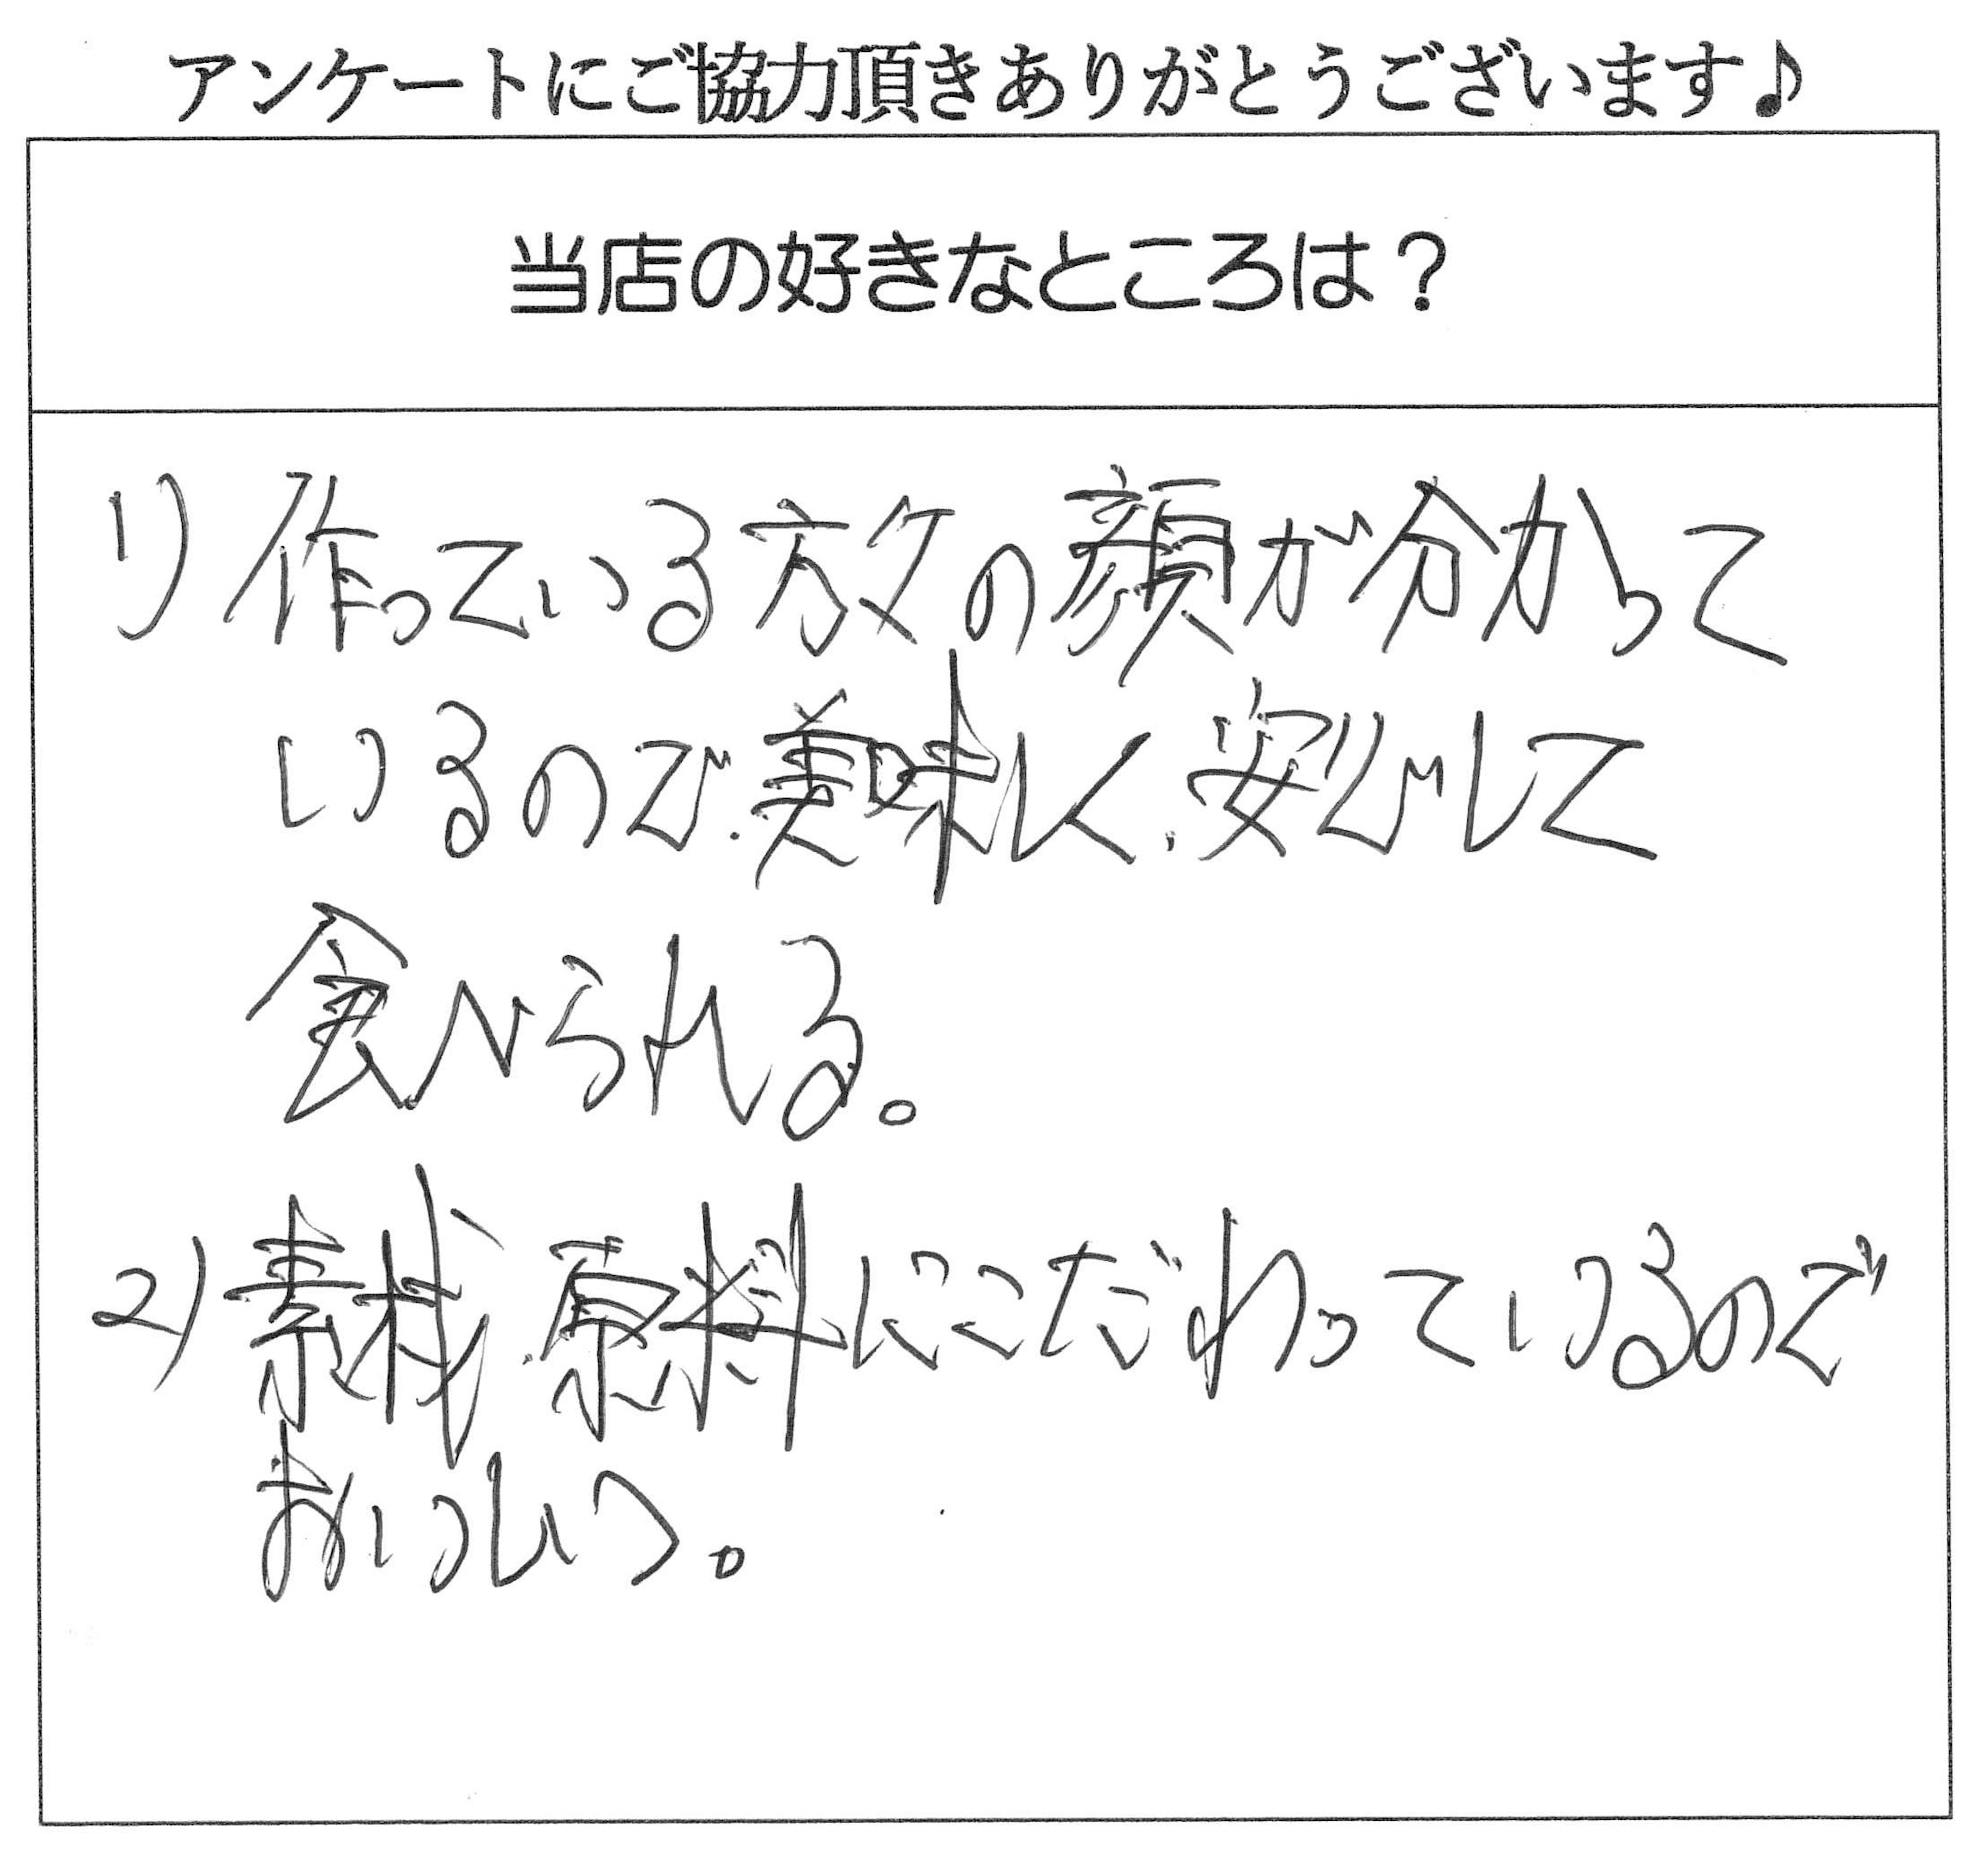 アンケートにご協力頂きありがとうございます♪
当店の好きなところは？
1) 作っている方々の顔が分かって
いるので、美味しく、安心して
食べられる。
2) 素材、原料にこだわっているので
おいしい。